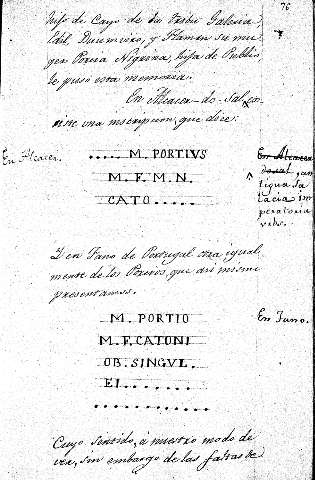 76
hijo de Cayo de la Tribu Galeria
Edil, Duumviro, y Flamen su mu-
ger Porcia Nigrina, hija de Publio
le puso esta memoria.
En Alcacer-do-Sal, co-
rre una inscripcion, que dice:
En Alcacer.
..... M. PORTIVS
M. F. M. N.
CATO .....
En Alcacer
dosal, an
tigua Sa
lacia im
peratoria
urbs.
Y en Faro de Portugal otra igual-
mente de los Porcios, que asi mismo
presentamos.
En Faro.
M. PORTIO
M. F. CATONI
OB. SINGVL.
EI.......
............
Cuyo sentido, à nuestro modo de
ver, sin embargo de las faltas de